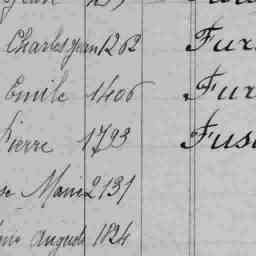 Charles Jean 1262 Fur
Emile 1406 Fur
Pierre 1793 Fus
Marie 2131
Auguste 1824